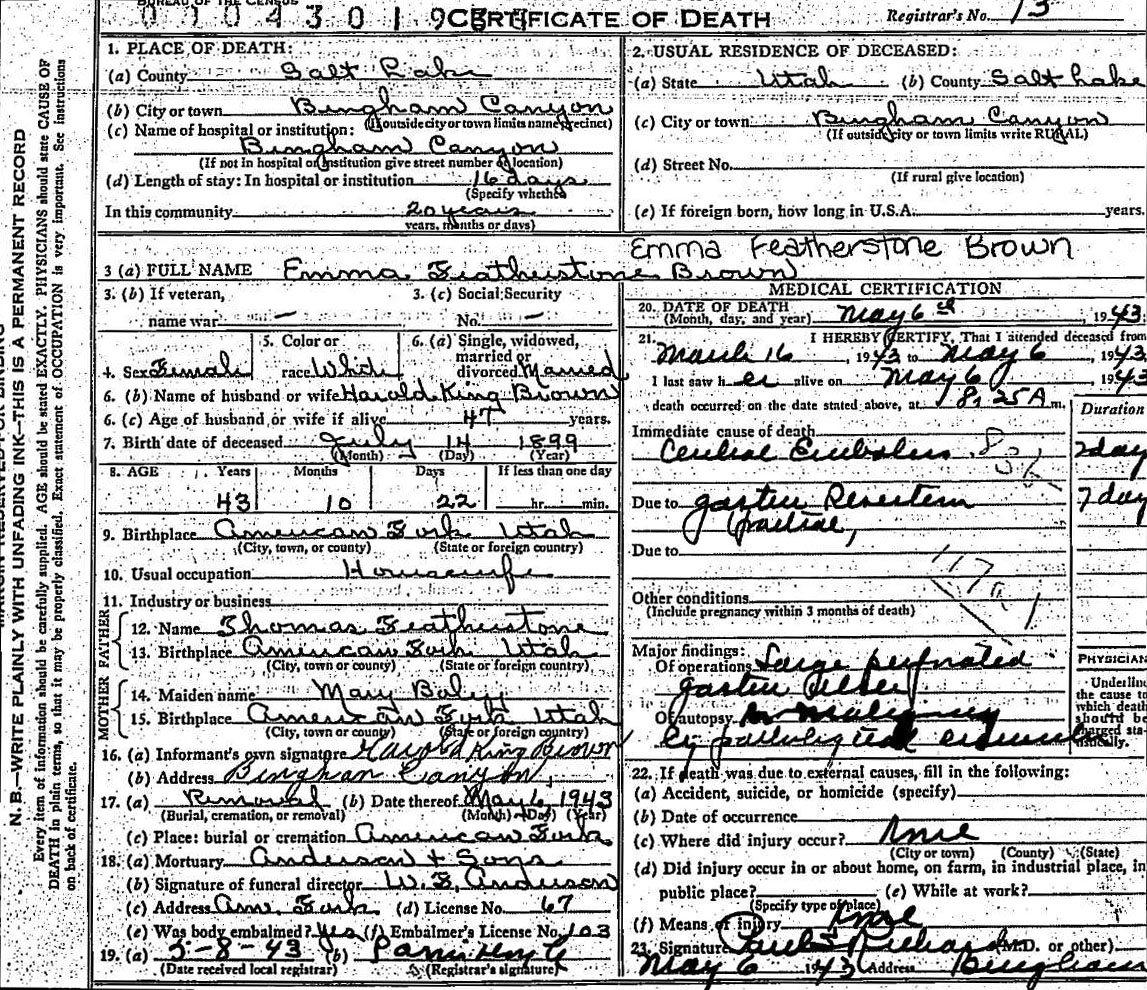 BUREAU OF THE CENSUS
CERTIFICATE OF DEATH Registrar's No. 13
N. B.—WRITE PLAINLY WITH UNFADING INK—THIS IS A PERMANENT RECORD
Every item of information should be carefully supplied. AGE should be stated EXACTLY. PHYSICIANS should state CAUSE OF
DEATH in plain terms, so that it may be properly classified. Exact statement of OCCUPATION is very important. See instructions
on back of certificate.
1. PLACE OF DEATH:
(a) County Salt Lake
(b) City or town Bingham Canyon
(If outside city or town limits name precinct)
(c) Name of hospital or institution:
Bingham Canyon
(If not in hospital or institution give street number or location)
(d) Length of stay: In hospital or institution 16 days
(Specify whether
In this community 20 years
years, months or days)
2. USUAL RESIDENCE OF DECEASED:
(a) State Utah (b) County Salt Lake
(c) City or town Bingham Canyon
(If outside city or town limits write RURAL)
(d) Street No.
(If rural give location)
(e) If foreign born, how long in U.S.A. years.
Emma Featherstone Brown
3 (a) FULL NAME Emma Featherstone Brown
3. (b) If veteran, 3. (c) Social Security
name war — No. —
5. Color or 6. (a) Single, widowed,
married or
4. Sex Female race White divorced Married
6. (b) Name of husband or wife Harold King Brown
6. (c) Age of husband or wife if alive 47 years.
7. Birth date of deceased July 14 1899
(Month) (Day) (Year)
8. AGE Years Months Days If less than one day
43 10 22 hr. min.
9. Birthplace American Fork Utah
(City, town, or county) (State or foreign country)
10. Usual occupation Housewife
11. Industry or business
FATHER
12. Name Thomas Featherstone
13. Birthplace American Fork Utah
(City, town or county) (State or foreign country)
MOTHER
14. Maiden name Mary
15. Birthplace American Fork Utah
(City, town or county) (State or foreign country)
16. (a) Informant's own signature Harold King Brown
(b) Address Bingham Canyon,
17. (a) Removal (b) Date thereof May 6 1943
(Burial, cremation, or removal) (Month) (Day) (Year)
(c) Place: burial or cremation American Fork
18. (a) Mortuary Anderson & Sons
(b) Signature of funeral director Anderson
(c) Address Am. Fork (d) License No. 67
(e) Was body embalmed? Yes (f) Embalmer's License No. 103
19. (a) 5-8-43 (b)
(Date received local registrar) (Registrar's signature)
MEDICAL CERTIFICATION
20. DATE OF DEATH
(Month, day, and year) May 6th, 1943
21. I HEREBY CERTIFY, That I attended deceased from
March 16, 1943 to May 6, 1943
I last saw her alive on May 6 1943
death occurred on the date stated above, at 8:25 A m.
Duration
Immediate cause of death
Embolus 2 day
Due to Gastric 7 day
Due to
Other conditions
(Include pregnancy within 3 months of death)
Major findings:
Of operations Large perforated
Gastric Ulcer
Of autopsy
PHYSICIAN
Underline
the cause to
which death
should be
charged sta-
tistically.
22. If death was due to external causes, fill in the following:
(a) Accident, suicide, or homicide (specify)
(b) Date of occurrence
(c) Where did injury occur?
(City or town) (County) (State)
(d) Did injury occur in or about home, on farm, in industrial place, in
public place? (e) While at work?
(Specify type of place)
(f) Means of injury
23. Signature Paul S. Richards M.D. or other)
May 6 1943 Address Bingham